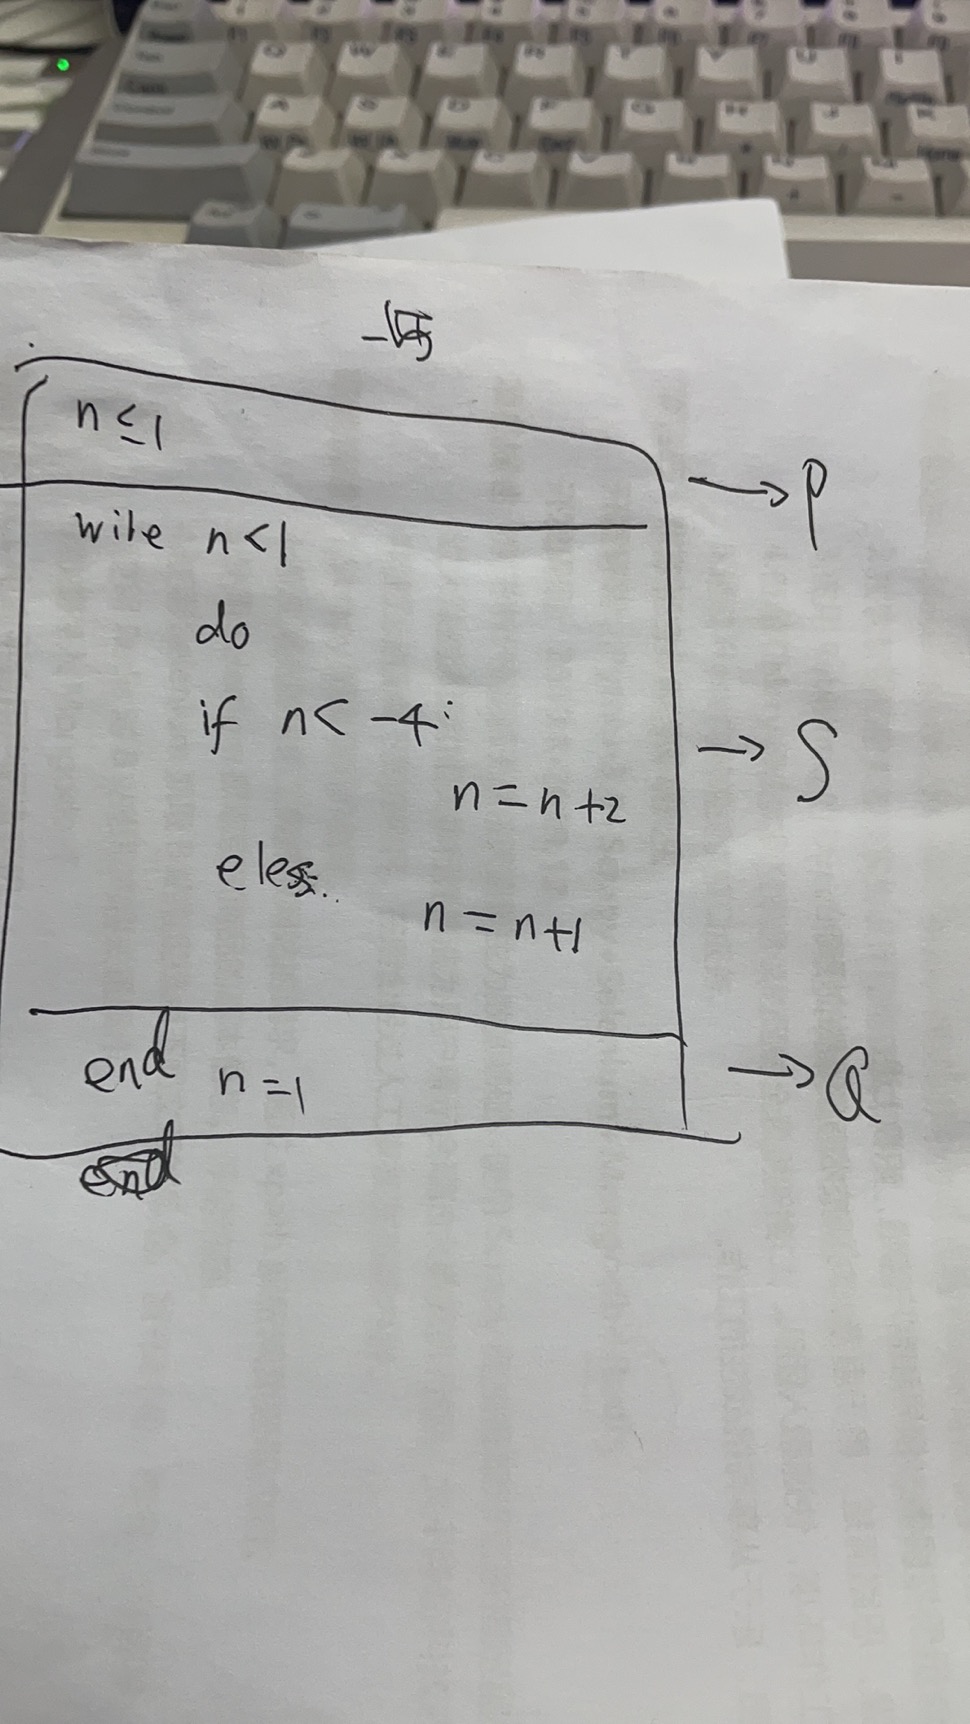 n ≤ 1
→ P
wile n < 1
do
if n < -4:
→ S
n = n + 2
eles:
n = n + 1
end n = 1
→ Q
end